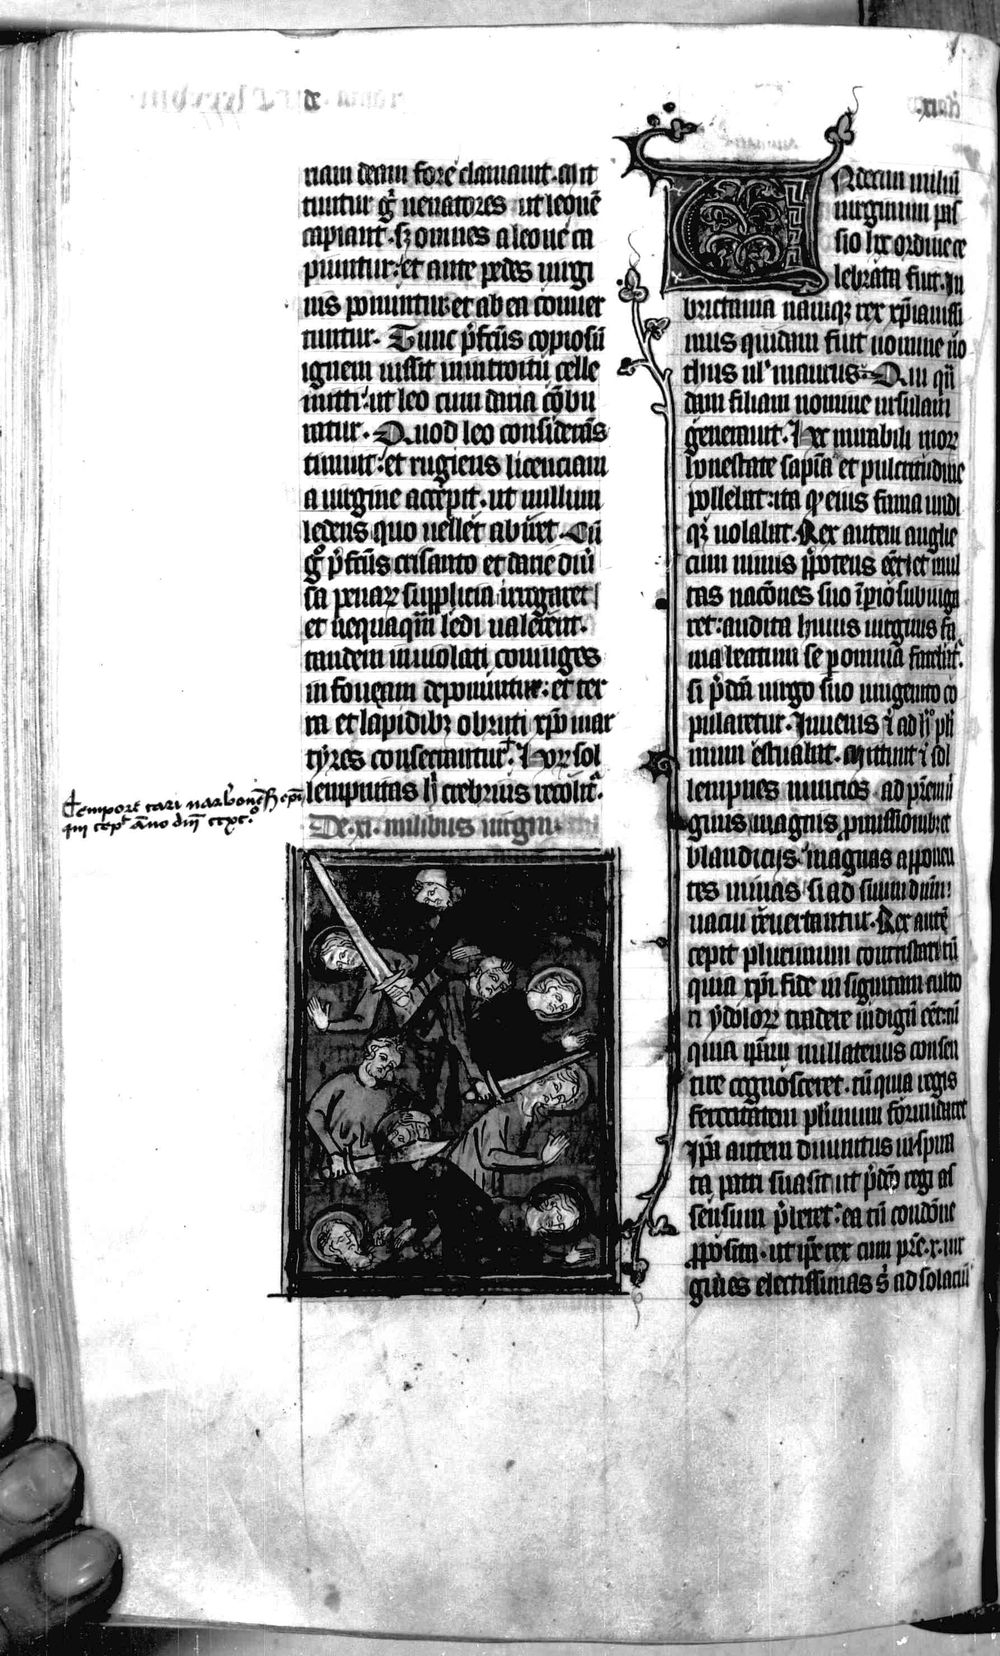 riam deam fore clamauit. Mit
tuntur gͥ uenatores ut leonē
capiant. sꝫ omnes a leone ca
piuntur: et ante pedes uirgi
nis ponuntur. et ab ea conuer
tuntur. Tunc p̄fc̄us copiosū
ignem iussit in introitu celle
mitti: ut leo cum daria cōbu
ratur. Quod leo considerās
timuit: et rugiens licenciam
a uirgine accepit. ut nullum
ledens quo uellet abiret. Cū
gͦ p̄fc̄us crisanto et darie diū
sa penaꝝ supplicia irrogaret
et nequaqͣm ledi ualerent.
tandem inuiolati coniuges
in foueam deponuntur: et ter
ra et lapidibꝫ obruti xp̄o mar
tyres consecrantur. Hoꝝ sol
lempnitas h̄ crebrius recolitͬ.
Tempore cari narbonēsis ep̄i
qui cepͭ āno dn̄i ccxcͦ
De .xi. milibus uirginū
VNdecim miliū
uirginum pas
sio hͨ ordine ce
lebrata fuit. In
brictania namqꝫ rex xp̄ianissi
mus quidam fuit nomine no
thus ul̓ maurus. Qui qn̄
dam filiam nomine ursulam
generauit. Hec mirabili moꝝ
honestate sapīa et pulcritudine
pollebat: ita ꝙ eius fama undi
qꝫ uolabat. Rex autem anglie
cum nimis p̄potens eēt et mul
tas nacōnes suo īpio subiuga
ret: audita huius uirginis fa
ma beatum se ꝑ omnia fatebatͬ.
si p̄dc̄a uirgo suo unigenito co
pularetur. Iuuenis ī ad hͦ pl̓i
mum estuabat. Mittunt ī sol
lempnes nuncios ad pr̄em uͥ
ginis magnis ꝓmissionibꝫ et
blandiciis. magnas apponen
tes minas si ad suum dn̄m
uacui reuertantur. Rex autē
cepit plurimum contristari tū
quia xp̄i fide insignitam culto
ri ydoloꝝ tradere indignū cēt: tū
quia ip̄am nullatenus consen
tire cognosceret. tū quia regis
ferocitatem pl̓imum formidaret
Ip̄a autem diuinitus inspira
ta patri suasit ut p̄dc̄o regi as
sensum p̄beret: ea tn̄ condōne
p̄posita. ut ip̄e rex cum pr̄e .x. uir
gines electissimas sͥ ad solaciū